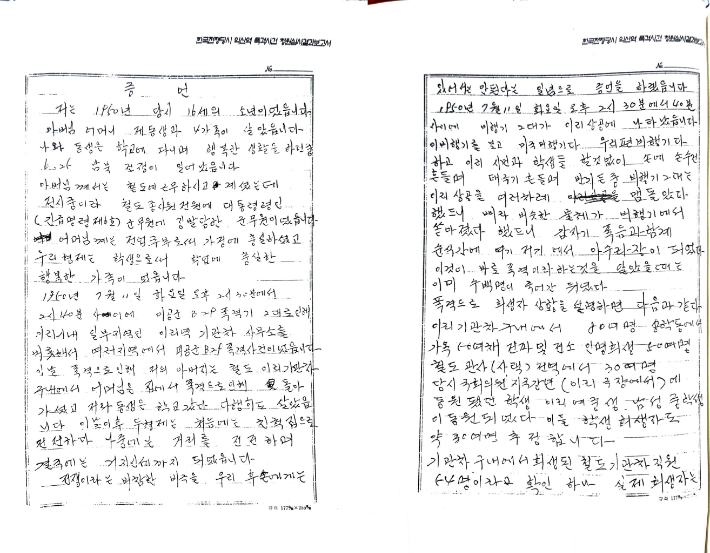 한국전쟁당시 익산역 폭격사건 청원실시결과보고서
№
증 언
저는 1950년 당시 16세의 소년이었습니다
아버님 어머니 제동생과 4가족이 살았습니다
나와 동생은 학교에 다니며 행복한 생활을 하던중
6.25 남북 전쟁이 일어났습니다
아버님께서는 철도에 근무하시고 계셨는데
전시중이라 철도 종사원전원에 대통령령인
(긴급명령제8호) 군무원에 준발당한 군무원이었습니다
어머님께는 전업주부로써 가정에 충실하셨고
우리형제는 학생으로써 학업에 충실한
행복한 가족이었습니다
1950년 7월 11일 화요일 오후 2시 30분에서
2시 40분 사이에 미공군 B29 폭격기 2대로인해
이리시내 일부지역인 이리역 기관차 사무소를
비롯해서 여러지역에서 미공군 B29 폭격사건이있습니다
이로 폭격으로인해 저의 아버지는 철도 이리기관차
구내에서 어머님은 집에서 폭격으로인해 돌아
가셨고 저와 동생은 학교갔다 다행히도 살았읍
니다 이후 두형제는 처음에는 친척집으로
전전하다 나중에는 거리를 전전하며
결국에는 거지신세까지 되었습니다
전쟁이라는 비참한 비극을 우리 후손에게는
규격 177%×250%
한국전쟁당시 익산역 폭격사건 청원실시결과보고서
№
있어서는 안된다는 일념으로 증언을 하겠습니다
1950년 7월 11일 화요일 오후 2시 30분에서 40분
사이에 비행기 2대가 이리상공에 나타났습니다
이비행기를 보고 미국비행기다 우리편비행기다
하고 이리 시민과 학생들 할것없이 손에 손수건
흔들며 태극기 흔들며 반기든중 비행기 2대는
이리상공을 여러차례 맴돌았다
했드니 삐라 비슷한 물체가 비행기에서
쏟아졌다 했드니 갑자기 폭음과함께
순식간에 여기 저기에서 아수라장이 되었다
이것이 바로 폭격이라하는것을 알았을때는
이미 수백명이 죽어간 뒤였다
폭격으로 희생자 상황을 설명하면 다음과 같다
이리기관차구내에서 80여명 송학동에서
가옥 50여채 전파및 전소 인명희생 50여명
철도 관사(사택) 전역에서 30여명
당시 국회의원 지국강연 (이리 극장에서)에
동원됐던 학생 이리여중생 남성 중학생
이 동원되었다 이들 학생희생자도
약 30여명 추정합니다
기관차 구내에서희생된 철도기관차직원
54명이라고 확인 하나 실제 희생자는
규격 177%×250%